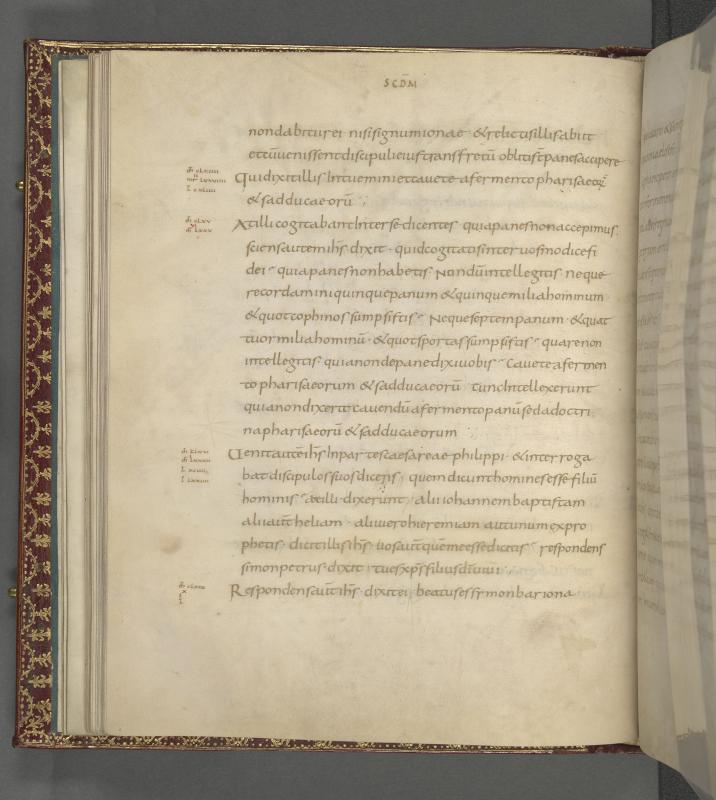 SCDM
nondabitur ei · nisi signum ionae · & relictis illis abiit
et cu uenissent discipuli eius trans fretu obliti st panes accipere
Qui dixit illis Intuemini et cauete a fermento pharisaeoꝝ
& sadducaeorū ;
At illi cogitabant Inter se dicentes quia panes non accepimus ·
sciens autem ihs dixit · quid cogitatis inter uos modice fi
dei · quia panes non habetis Nondū intellegitis neque
recordamini quinque panum & quinque milia hominum
& quot cophinos sumpsistis · Neque septem panum · & quat
tuor milia hominū · & quot sportas sumpsistis · quare non
intellegitis quia non de pane dixi uobis · Cauete a fermen
to pharisaeorum & sadducaeorū tunc Intellexerunt
quia non dixerit cauendū a fermento panū sed a doctri
na pharisaeorū & sadducaeorum ;
Uenit autē ihs In partes caesareae philippi · & interroga
bat discipulos suos dicens quem dicunt homines esse filiū
hominis at illi dixerunt alii iohannem baptistam
alii aut heliam · alii uero hieremiam aut unum ex pro
phetis dicit illis ihs uos aut quem me esse dicitis · respondens
simon petrus dixit · tu es xps filius di uiui ·
Respondens aut ihs · dixit ei beatus es simon bar iona